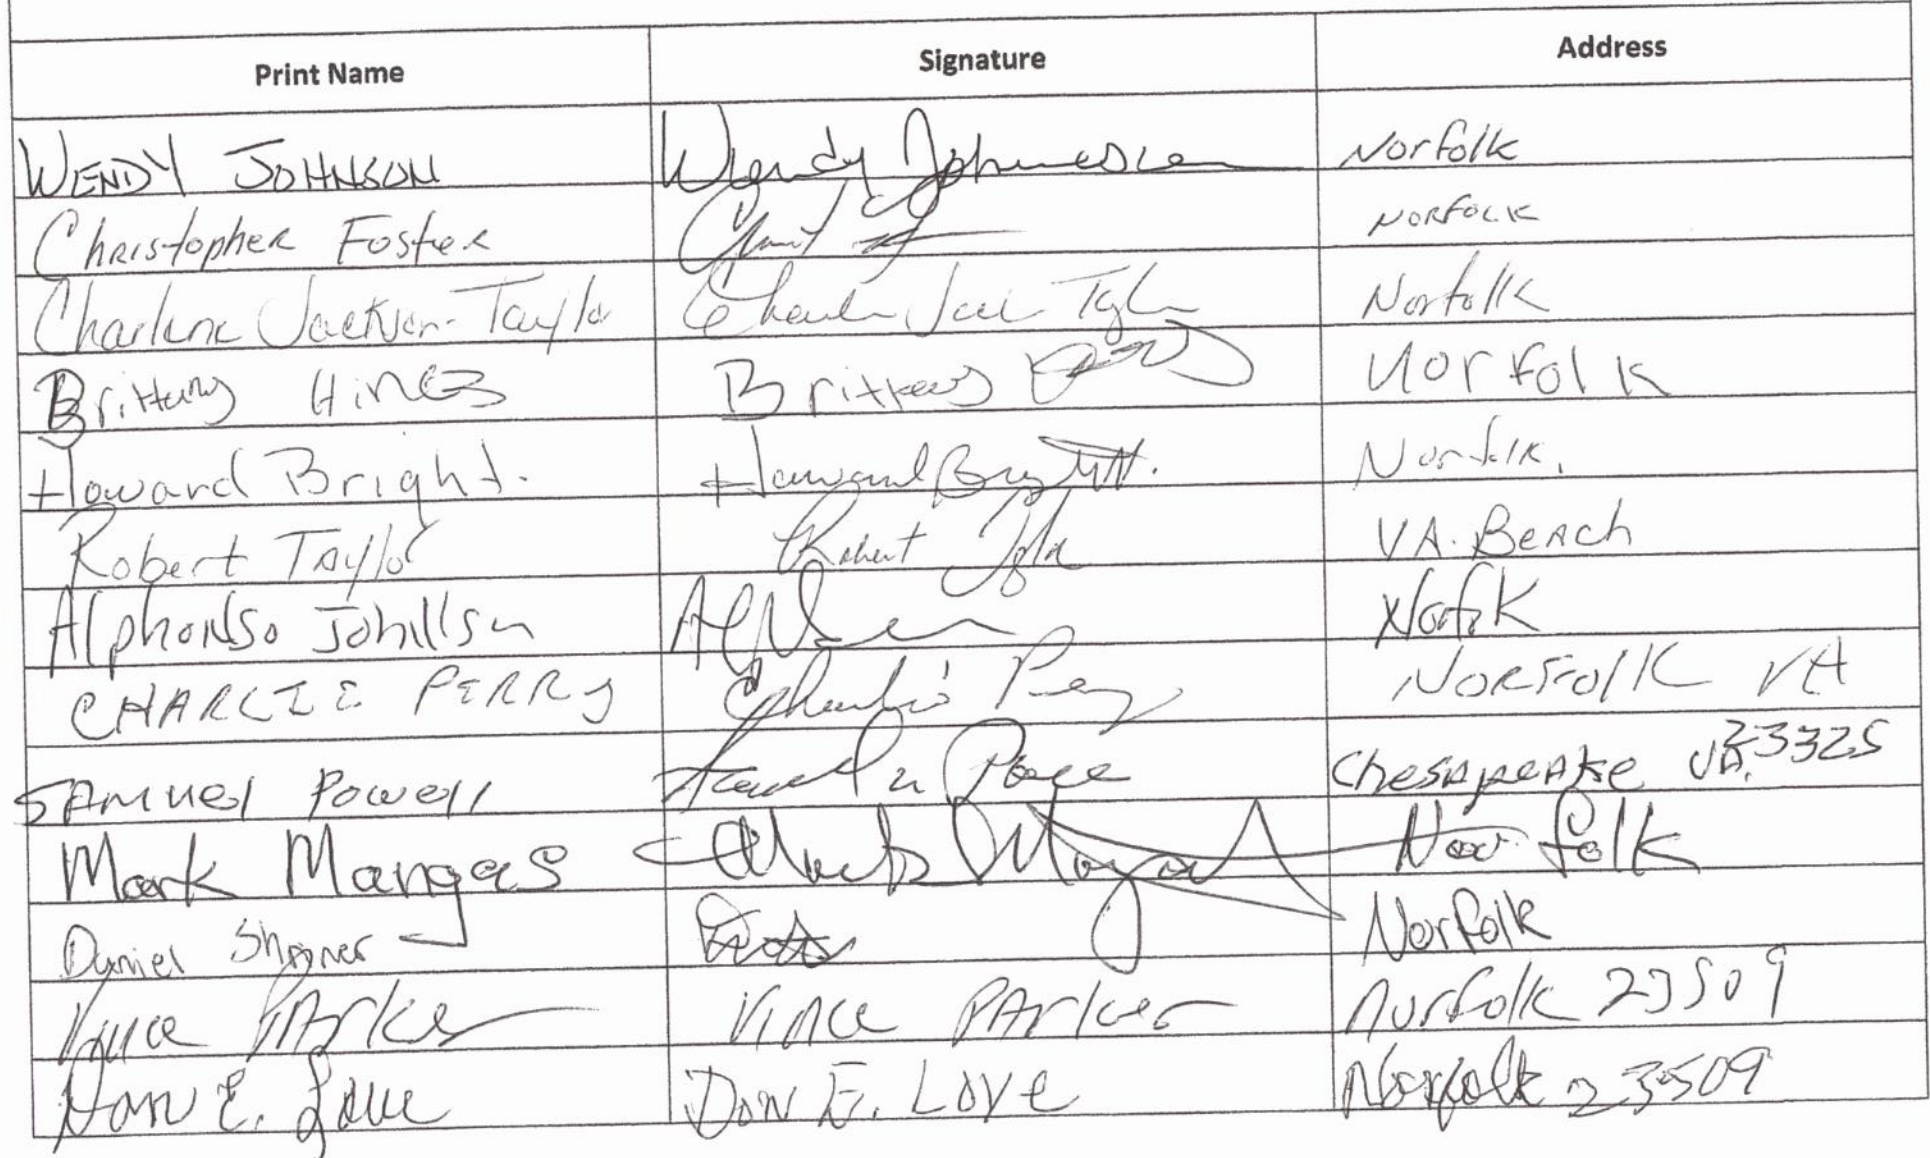 Print Name Signature Address
WENDY JOHNSON Wendy Johnson Norfolk
Christopher Foster Norfolk
Charlene Jackson-Taylor Norfolk
Brittany HINES Brittany Norfolk
Howard Bright. Howard Norfolk.
Robert Taylor Robert VA. Beach
Alphonso Norfk
CHARLIE PERRY Charlie Perry Norfolk VA
SAmuel Powell Chesapeake VA. 23325
Mark Mangas Mark Norfolk
Daniel Norfolk
Vince PArker Vince PArker Norfolk 23509
Don E. Love Don E. Love Norfolk 23509